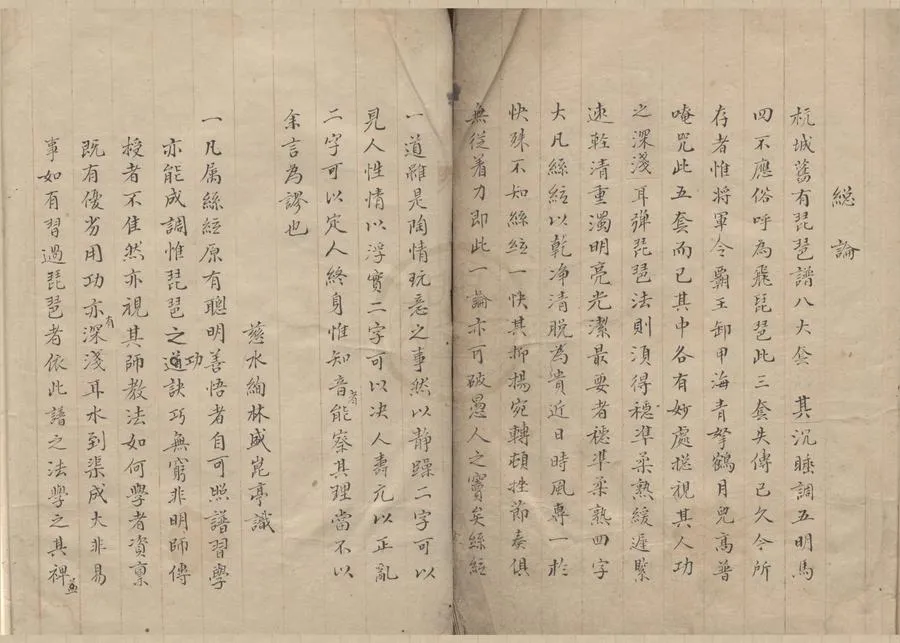 総論
杭城舊有琵琶譜八大套 其沉睡調五明馬
四不應俗呼為飛琵琶此三套失傳已久今所
存者惟將軍令霸王卸甲海青拏鶴月兒高普
唵咒此五套而已其中各有妙處摠視其人功
之深淺耳彈琵琶法則須得穩準柔熟緩遲緊
速輕清重濁明亮光潔最要者穩準柔熟四字
大凡絲絃以乾净清脫為貴近日時風專一於
快殊不知絲絃一快其抑揚宛轉頓挫節奏俱
無從着力即此一論亦可破愚人之竇矣絲絃
一道雖是陶情玩意之事然以静躁二字可以
見人性情以浮實二字可以决人壽元以正亂
二字可以定人終身惟知音者能察其理當不以
余言為謬也
慈水絢林盛崑亭識
一凡属絲絃原有聰明善悟者自可照譜習學
亦能成調惟琵琶之功訣巧無窮非明師傳
授者不隹然亦視其師教法如何學者資稟
既有優劣用功亦有深淺耳水到渠成大非易
事如有習過琵琶者依此譜之法學之其裨益